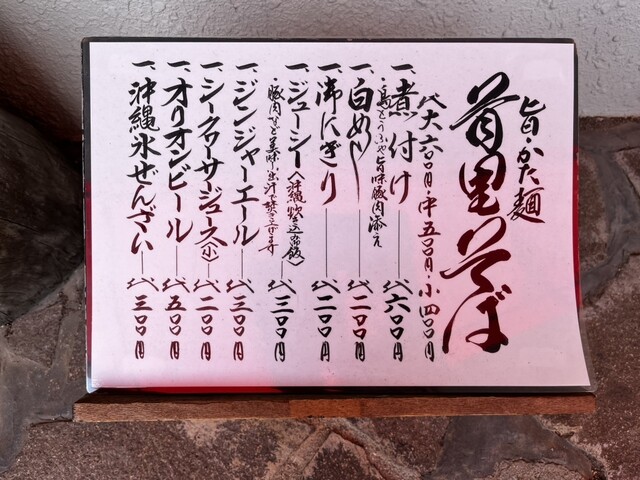 旨・かた麺
首里そば
代大六〇〇円・中五〇〇円・小四〇〇円
一、煮付け 代六〇〇円
・島とうふや旨味豚肉添え
一、白めし 代二〇〇円
一、御にぎり 代二〇〇円
一、ジューシー〈沖縄炊き込み御飯〉 代三〇〇円
・豚肉など美味し出汁で焚き上げます
一、ジンジャーエール 代三〇〇円
一、シークワーサージュース(小) 代二〇〇円
一、オリオンビール 代五〇〇円
一、沖縄氷ぜんざい 代三〇〇円